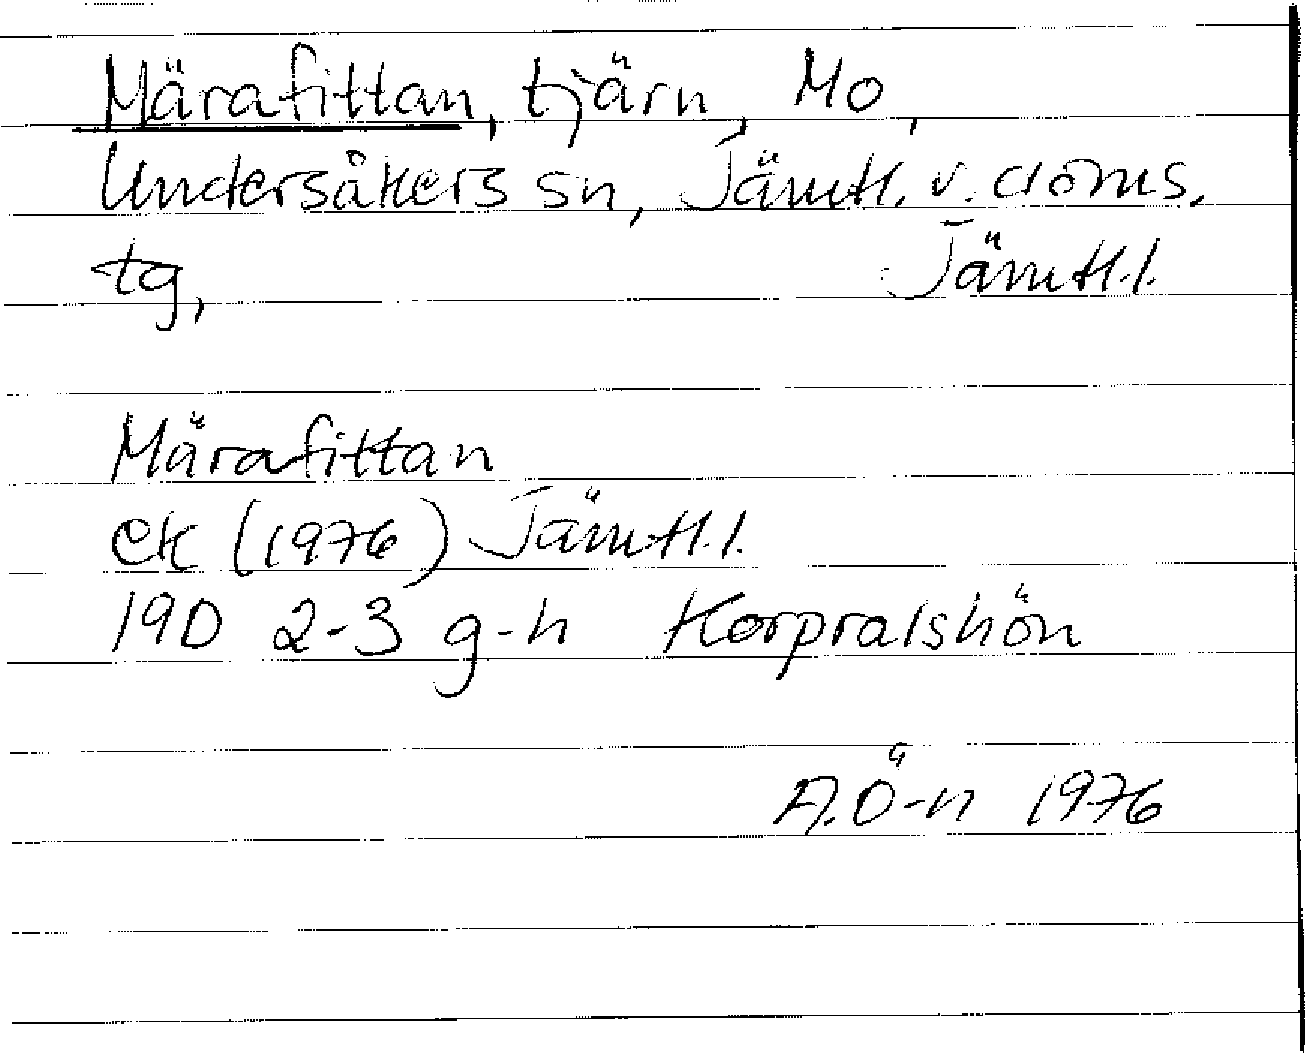 Märafittan, tjärn, Mo,
Undersåkers sn, Jämtl. v. doms.
tg, Jämtl.l.
Märafittan
ek (1976) Jämtl.l.
19D 2-3 g-h Korpralshön
A.Ö-n 1976